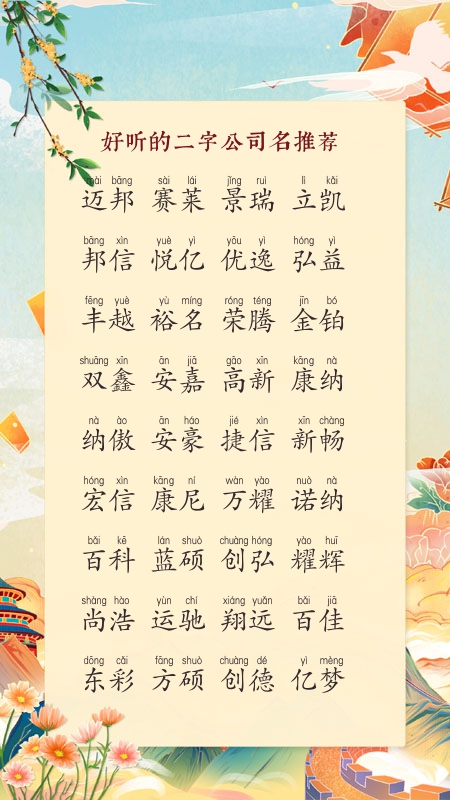 好听的二字公司名推荐
mài bāng sài lái jǐng ruì lì kǎi
迈邦 赛莱 景瑞 立凯
bāng xìn yuè yì yōu yì hóng yì
邦信 悦亿 优逸 弘益
fēng yuè yù míng róng téng jīn bó
丰越 裕名 荣腾 金铂
shuāng xīn ān jiā gāo xīn kāng nà
双鑫 安嘉 高新 康纳
nà ào ān háo jié xìn xīn chàng
纳傲 安豪 捷信 新畅
hóng xìn kāng ní wàn yào nuò nà
宏信 康尼 万耀 诺纳
bǎi kē lán shuò chuàng hóng yào huī
百科 蓝硕 创弘 耀辉
shàng hào yùn chí xiáng yuǎn bǎi jiā
尚浩 运驰 翔远 百佳
dōng cǎi fāng shuò chuàng dé yì mèng
东彩 方硕 创德 亿梦